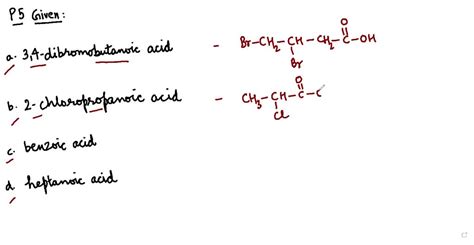 P5 Given:
a. 3,4-dibromobutanoic acid - Br-CH2-CH-CH2-C-OH
O
Br
b. 2-chloropropanoic acid - CH3-CH-C-
O
Cl
c. benzoic acid
d. heptanoic acid